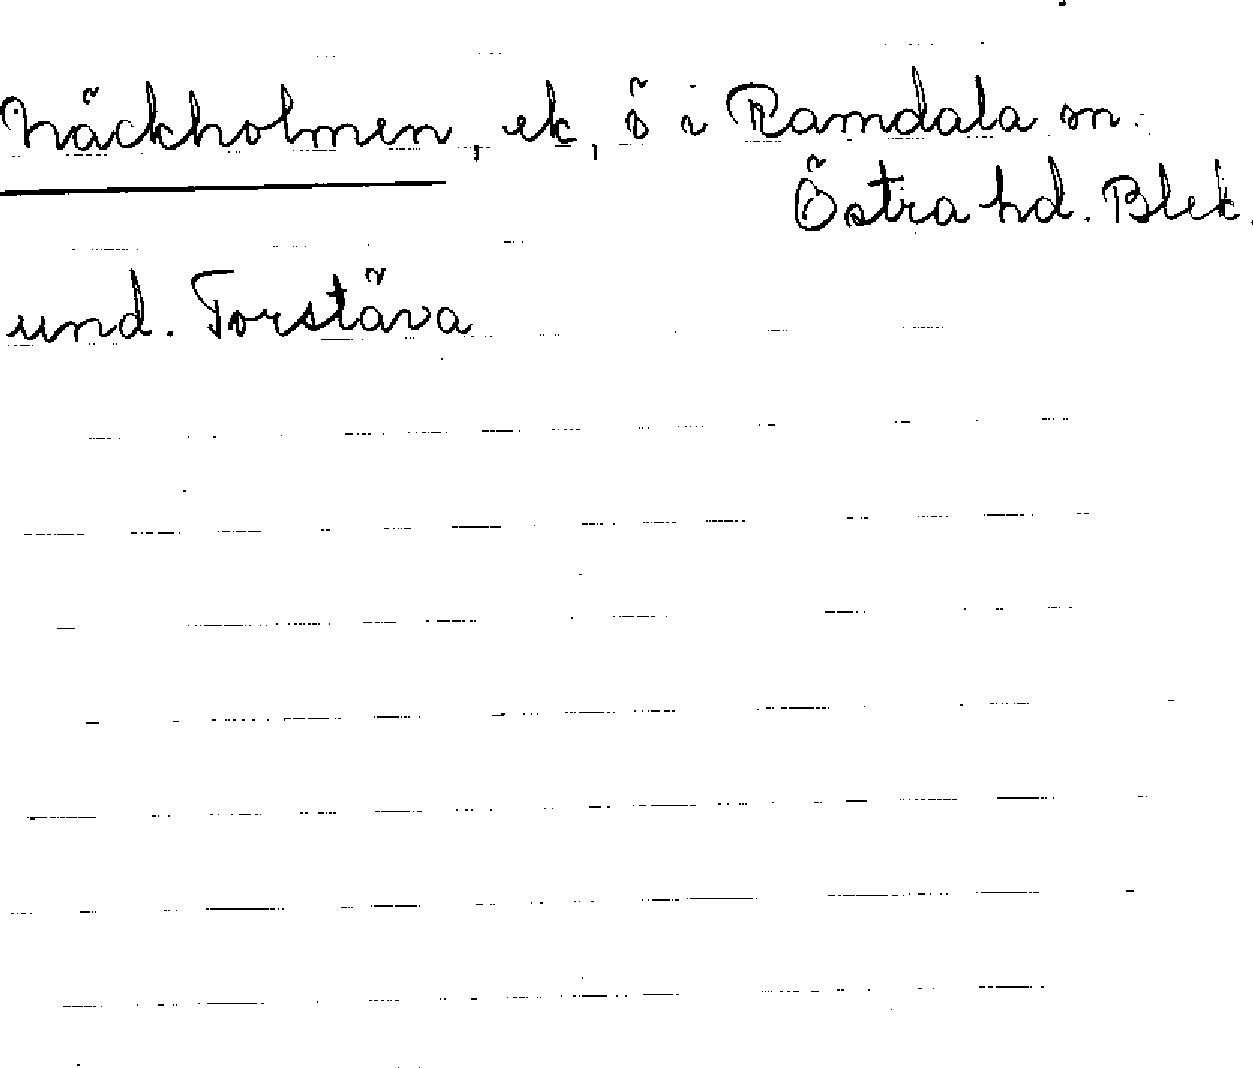 Näckholmen, ek, ö i Ramdala sn.
Östra hd. Blek.
und. Torstäva